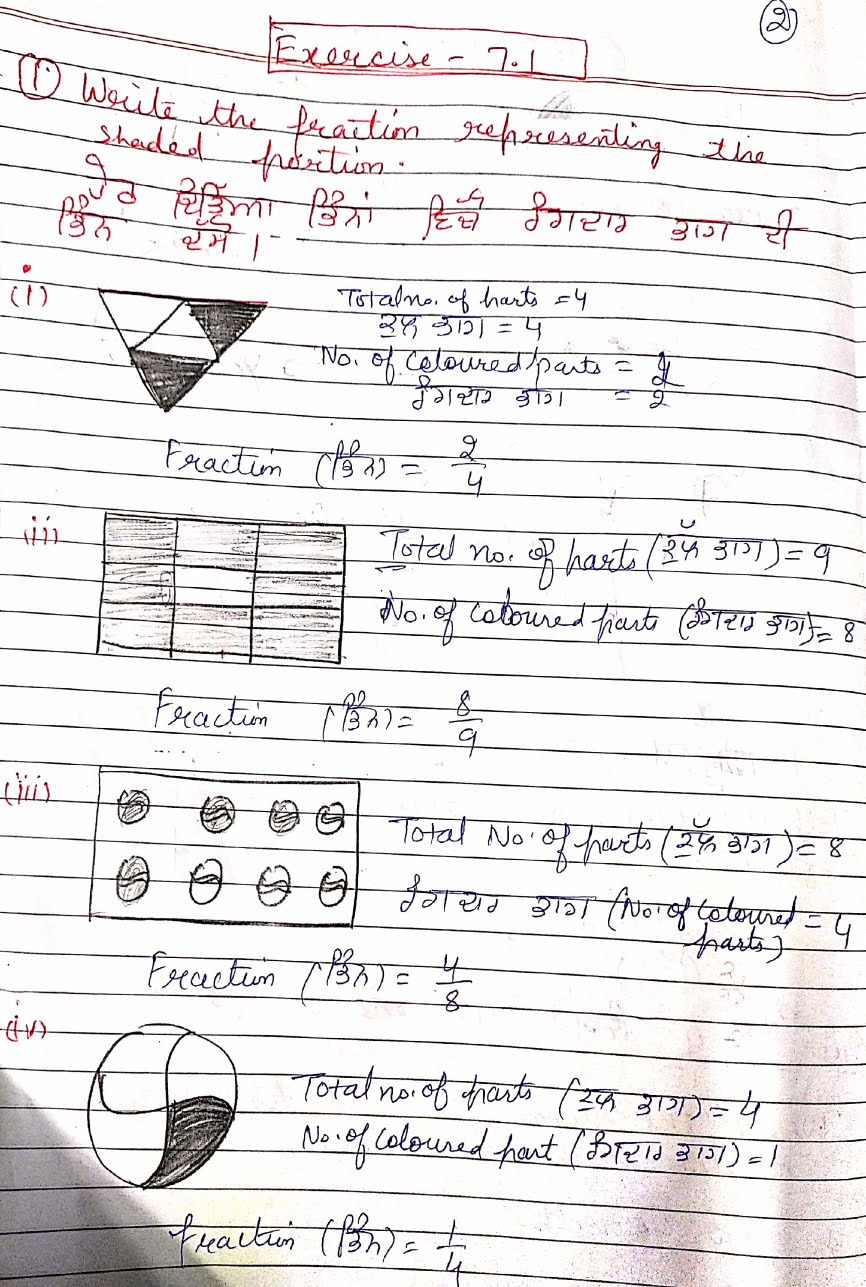 2
Exercise - 7.1
1. Write the fraction representing the
shaded portion.
ਹੇਠ ਚਿੱਤਰਾਂ ਭਿੰਨਾਂ ਵਿੱਚੋਂ ਰੰਗਦਾਰ ਭਾਗ ਦੀ
ਭਿੰਨ ਦੱਸੋ।
(i)
Total no. of parts = 4
ਕੁੱਲ ਭਾਗ = 4
No. of coloured parts = 2
ਰੰਗਦਾਰ ਭਾਗ = 2
Fraction (ਭਿੰਨ) = 2/4
(ii)
Total no. of parts (ਕੁੱਲ ਭਾਗ) = 9
No. of coloured parts (ਰੰਗਦਾਰ ਭਾਗ) = 8
Fraction (ਭਿੰਨ) = 8/9
(iii)
Total No. of parts (ਕੁੱਲ ਭਾਗ) = 8
ਰੰਗਦਾਰ ਭਾਗ (No. of coloured = 4
parts)
Fraction (ਭਿੰਨ) = 4/8
(iv)
Total no. of parts (ਕੁੱਲ ਭਾਗ) = 4
No. of coloured part (ਰੰਗਦਾਰ ਭਾਗ) = 1
fraction (ਭਿੰਨ) = 1/4